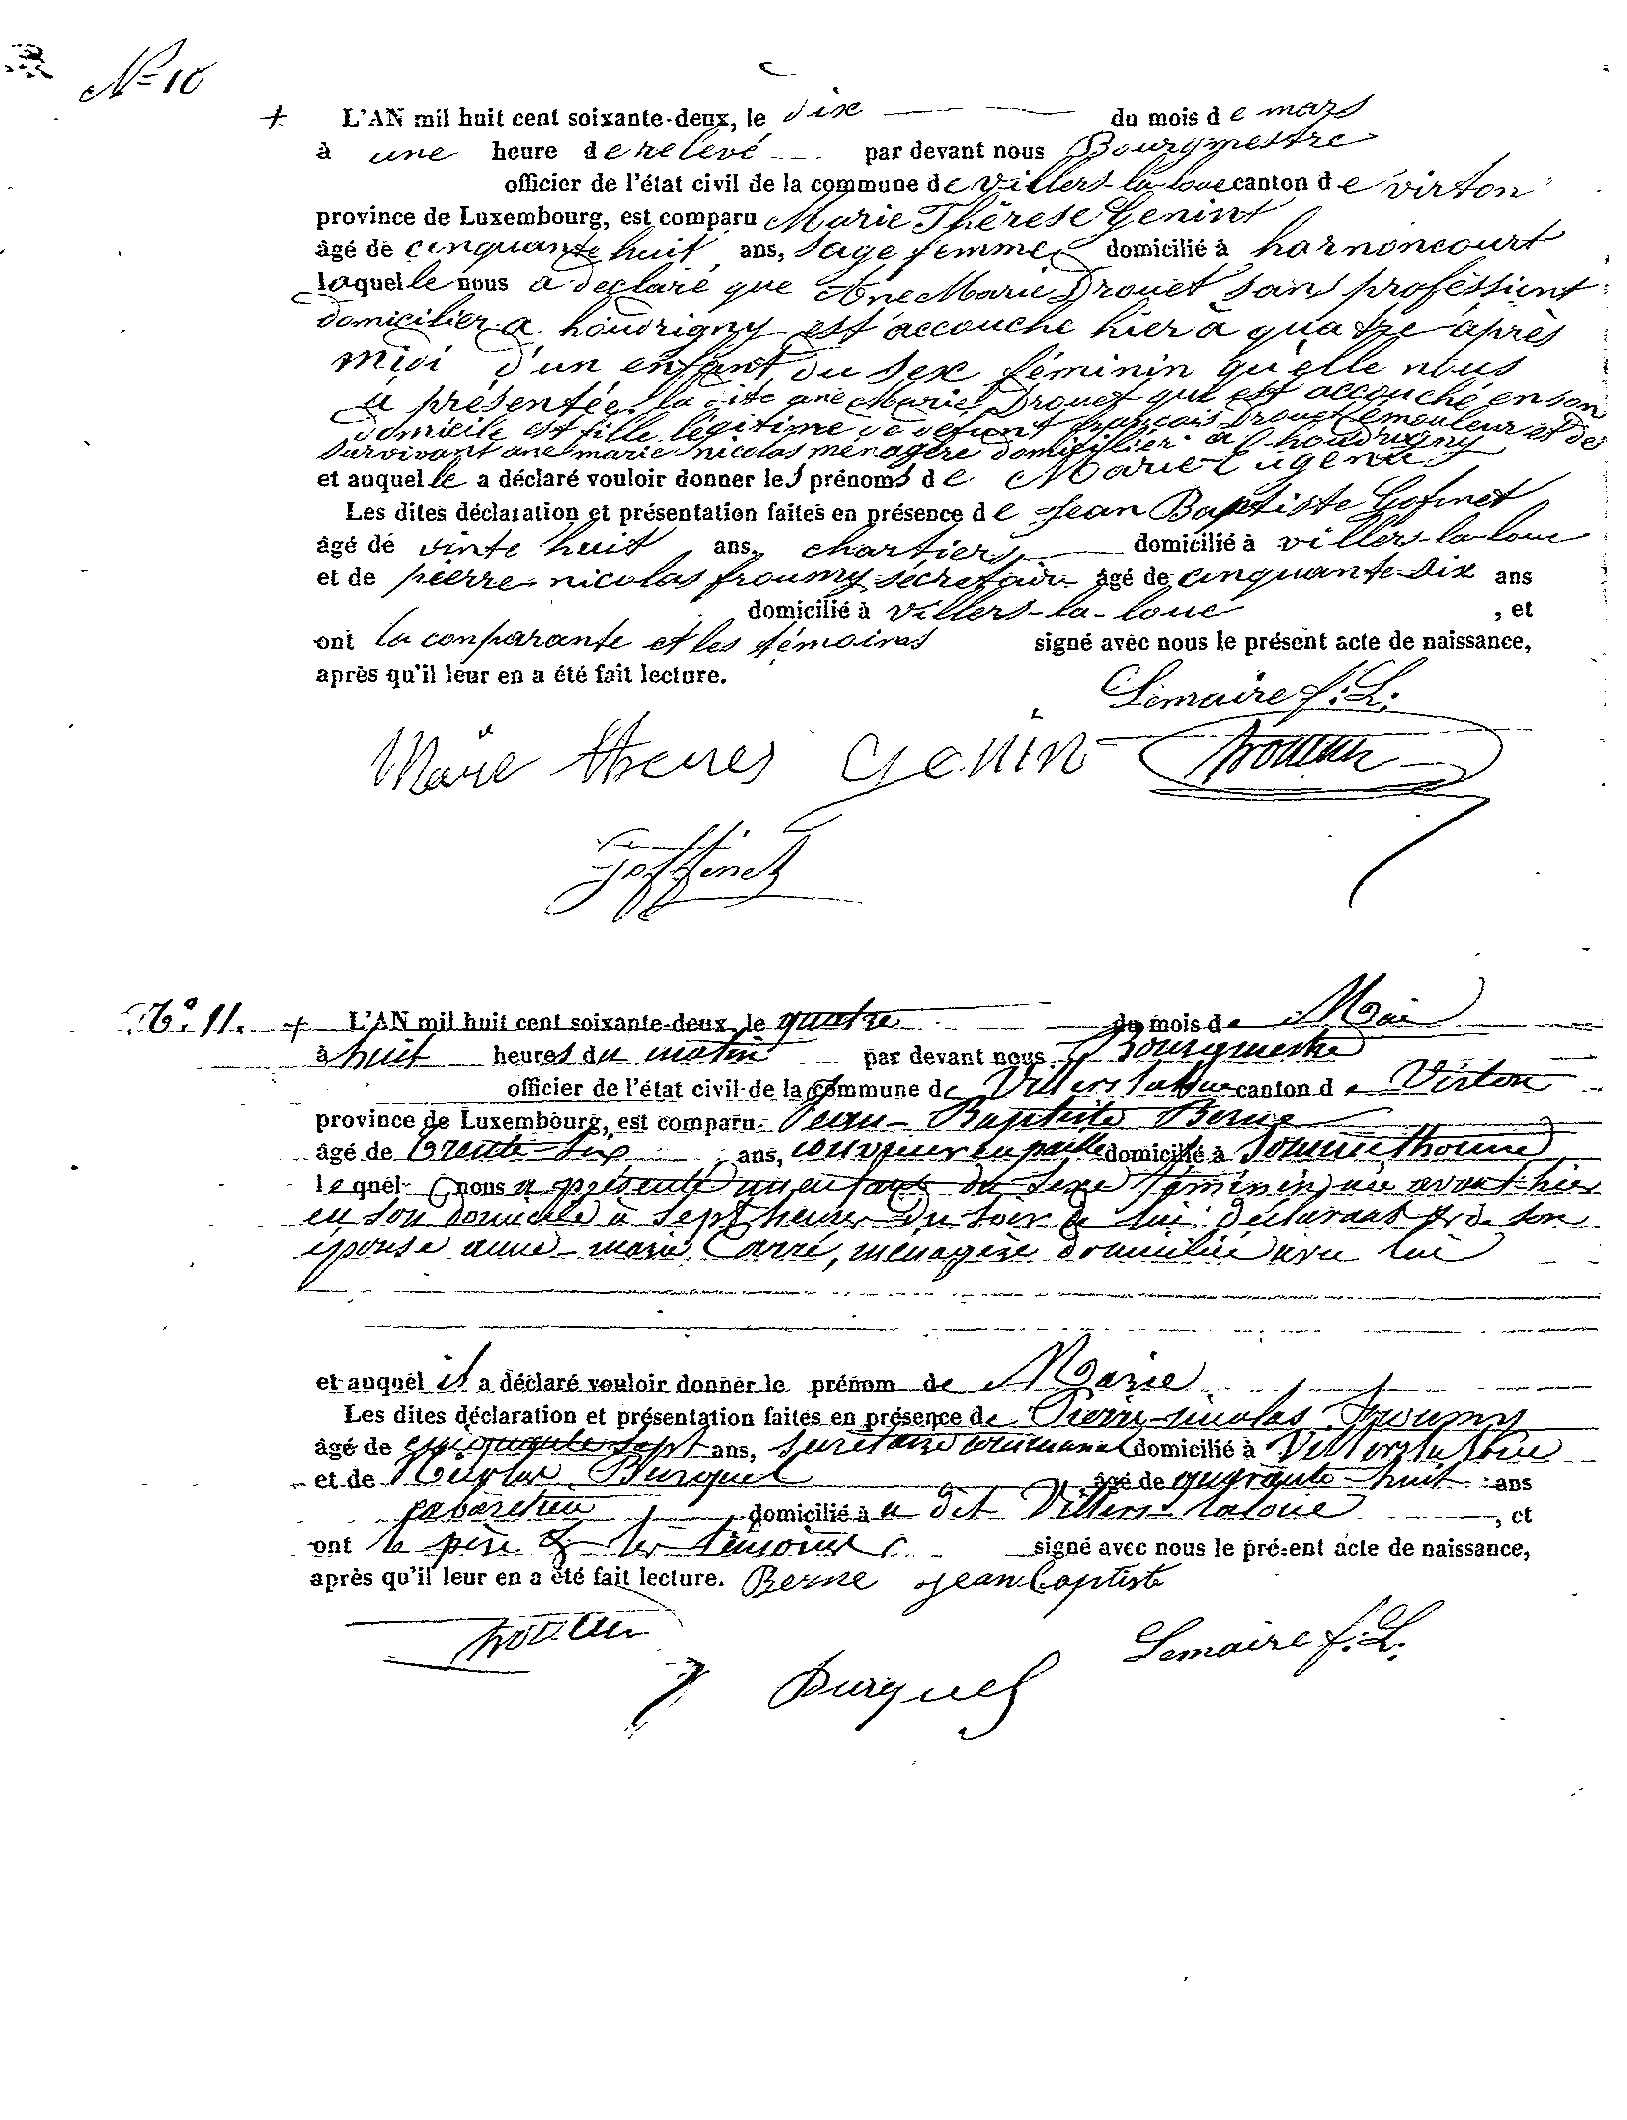 N° 10
+ L'AN mil huit cent soixante-deux, le dix du mois de mars
à une heure de relevé par devant nous Bourgmestre
officier de l'état civil de la commune de Villers-la-loue canton de virton
province de Luxembourg, est comparu Marie Thérese Genint
âgé de cinquante huit ans, sage femme domicilié à harnoncourt
laquelle nous a déclaré que Ane Marie Drouet sans proféssiont
domicilier a houdrigny est accouché hier à quatre après
midi d'un enfant du sex féminin qu'elle nous
a présentée la dite ane Marie Drouet que est accouché en son
domicile est fille légitime de defunt françois Drouet émouleur et de
survivant ane marie nicolas ménagère domicilier a houdrigny
et auquelle a déclaré vouloir donner les prénoms de Marie Eugenie
Les dites déclaration et présentation faites en présence de Jean Baptiste Gofinet
âgé de vinte huit ans, chartiers domicilié à villers-la-loue
et de pierre nicolas froumy sécretaire âgé de cinquante-six ans
domicilié à villers-la-loue , et
ont la conparante et les témoires signé avec nous le présent acte de naissance,
après qu'il leur en a été fait lecture.
Lemaire f: L.
Marie therres Genin
Goffinet
N° 11. + L'AN mil huit cent soixante-deux, le quatre du mois de Mai
à huit heures du matin par devant nous Bourgmestre
officier de l'état civil de la commune de Villers laloue canton de Virton
province de Luxembourg, est comparu Jean-Baptiste Berne
âgé de trente-six ans, couvreur en paille domicilié à Sommethonne
lequel nous a présenté un enfant du sexe féminin, né avant-hier
en son domicile à sept heures du soir de lui déclarant & de son
épouse anne-marie Carré, ménagère domiciliée avec lui
et auquel il a déclaré vouloir donner le prénom de Marie
Les dites déclaration et présentation faites en présence de Pierre-nicolas froumy
âgé de cinquante sept ans, secrétaire communal domicilié à Villers la loue
et de Burquel âgé de quarante-huit ans
cabaretier domicilié à a dit Villers-laloue , et
ont le père & les témoins signé avec nous le présent acte de naissance,
après qu'il leur en a été fait lecture. Berne jean baptiste
Lemaire f: L.
Burquel